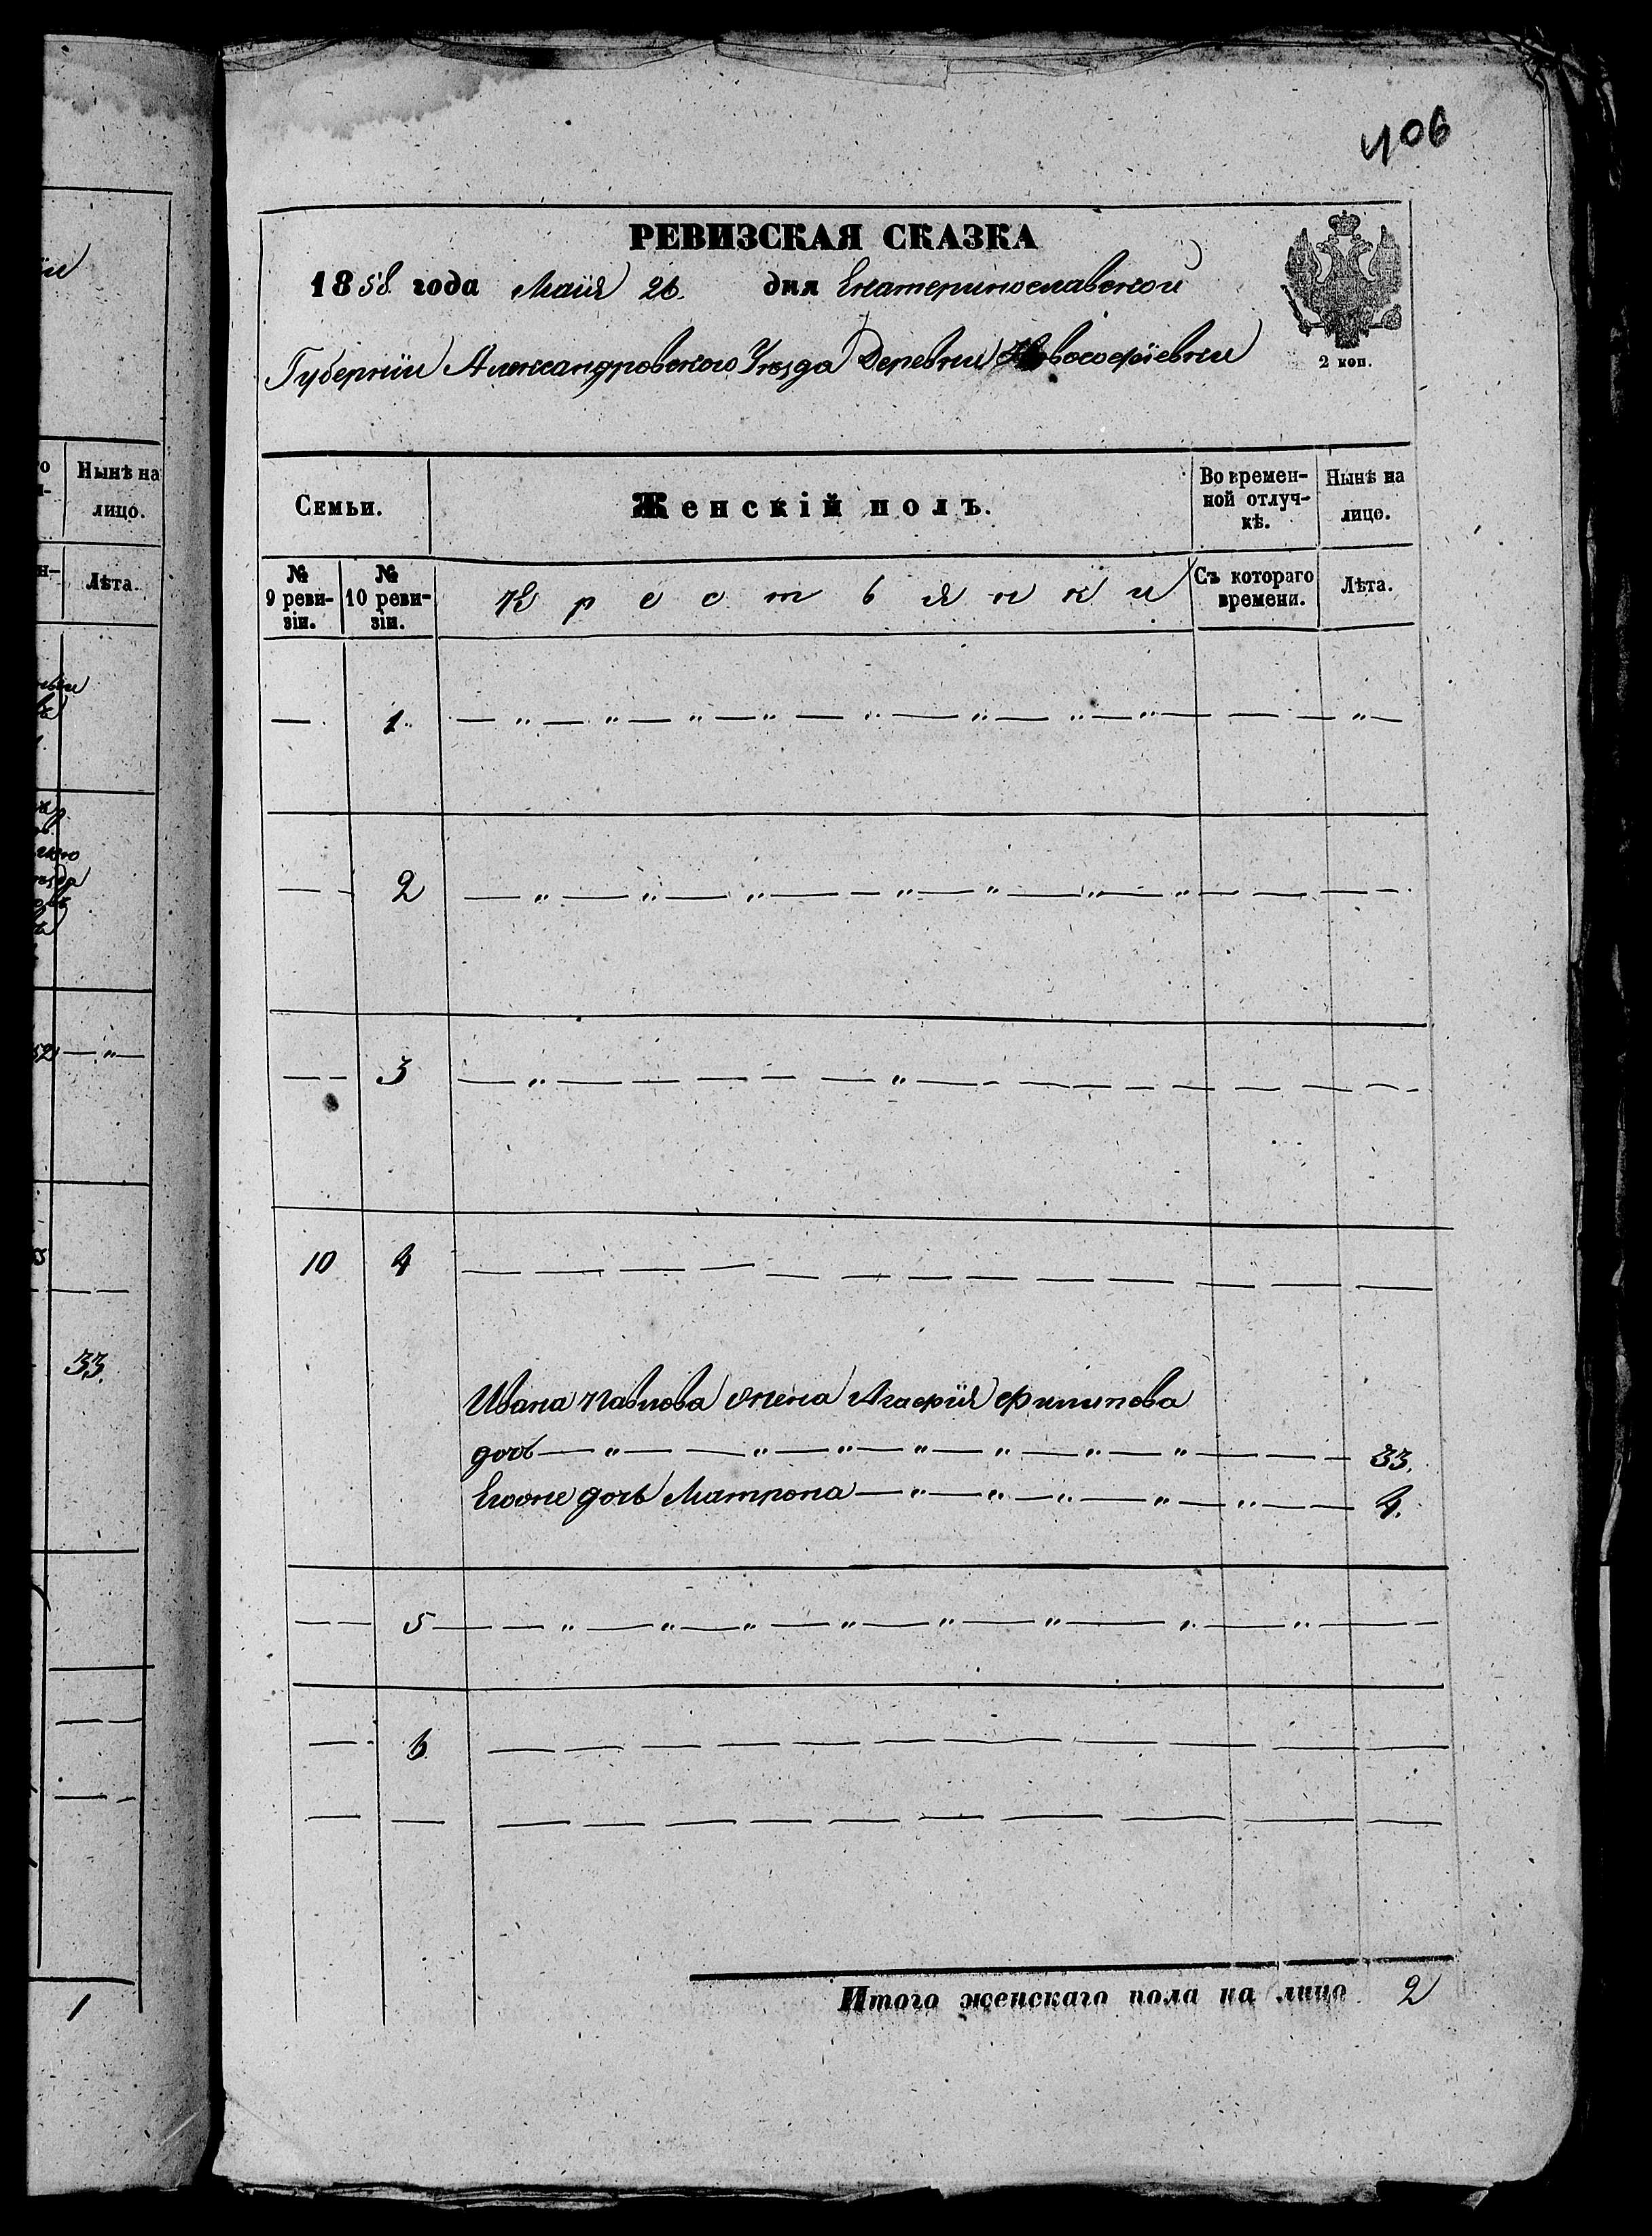 406
РЕВИЗСКАЯ СКАЗКА
1858 года Маія 26. дня Екатеринославской
Губерніи Александровского Уѣзда Деревни Новософіевки
2 коп.
Семьи.
Женскій полъ.
Во времен-
ной отлуч-
кѣ.
Нынѣ на
лицо.
№
9 реви-
зіи.
№
10 реви-
зіи.
Крестьянки
Съ котораго
времени.
Лѣта.
— 1. — " — " — " — " — " — " — " — " — — — " —
— — 2 — " — " — " — — " — " — " — " — — — —
— — 3 — " — — — — — " — — — — — — — — —
10 4 — — — — — — — — — — — —
Ивана Павлова жена Агафія Филипова
дочь — " — — " — " — " — " — " — " — — — 33.
Егоже дочь Матрона — " — " — " — " — " — — 4.
— — 5 — — " — " — " — " — " — " — " — " — —
— 6 — — — — — — — — — — —
— — — — — — — — — — — —
Итого женскаго пола на лицо 2
Нынѣ на
лицо.
Лѣта.
— " —
33.
1